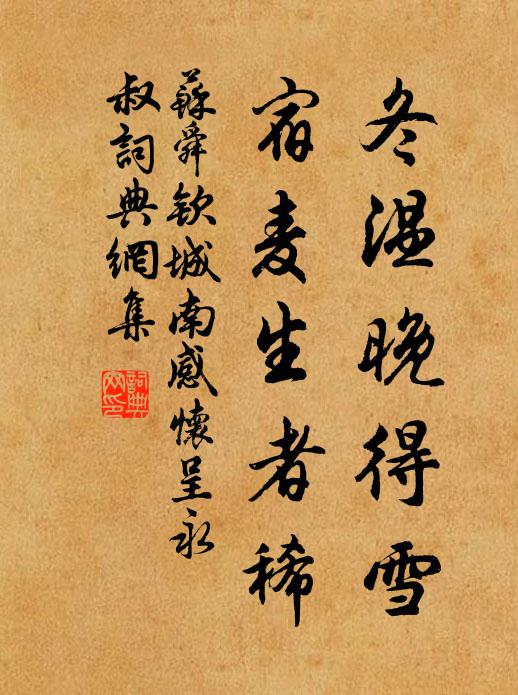 冬温晚得雪
宿麦生者稀
蘇舜欽城南感懷呈永
叔詞典網集
詞典
网印